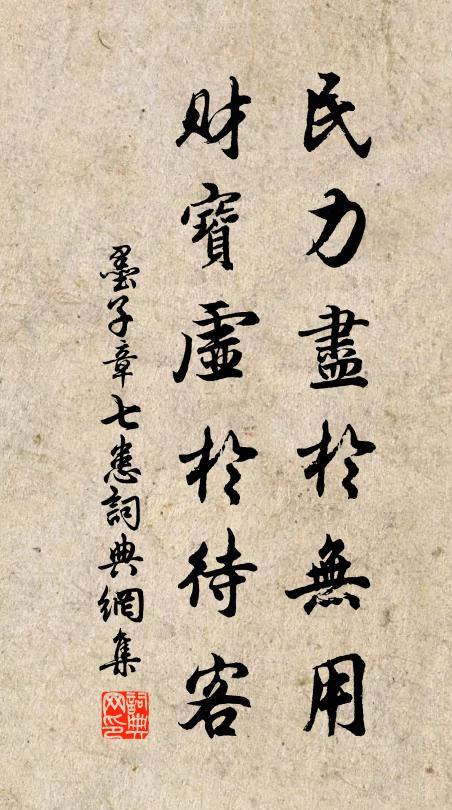 民力盡於無用
財寶虛於待客
墨子章七患詞典網集
詞典网印